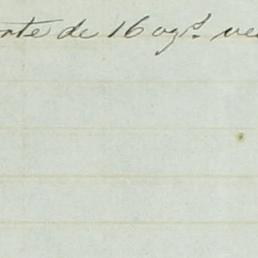 rte de 16 vgs. ve